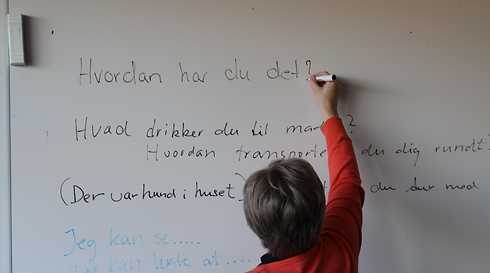 Hvordan har du det?
Hvad drikker du til ?
Hvordan du dig rundt?
(Der var hund i huset) du med
Jeg kan se.....
kan at.....